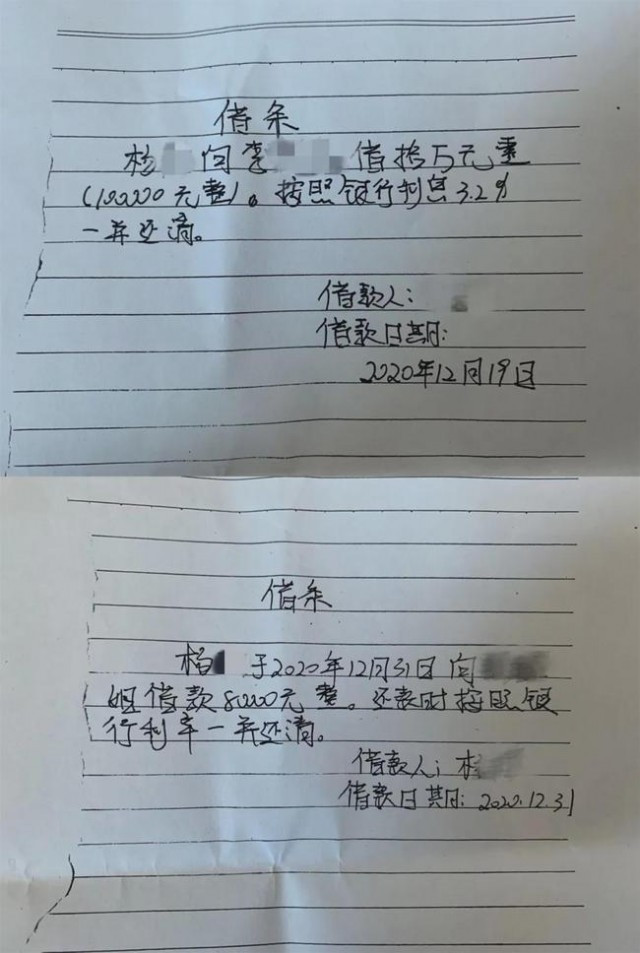 借条
杨 向李 借拾万元整
(100000元整)。按照银行利息3.2%
一并还清。
借款人：
借款日期：
2020年12月19日
借条
杨 于2020年12月31日向
姐借款80000元整。还表时按照银
行利率一并还清。
借款人：杨
借款日期：2020.12.31